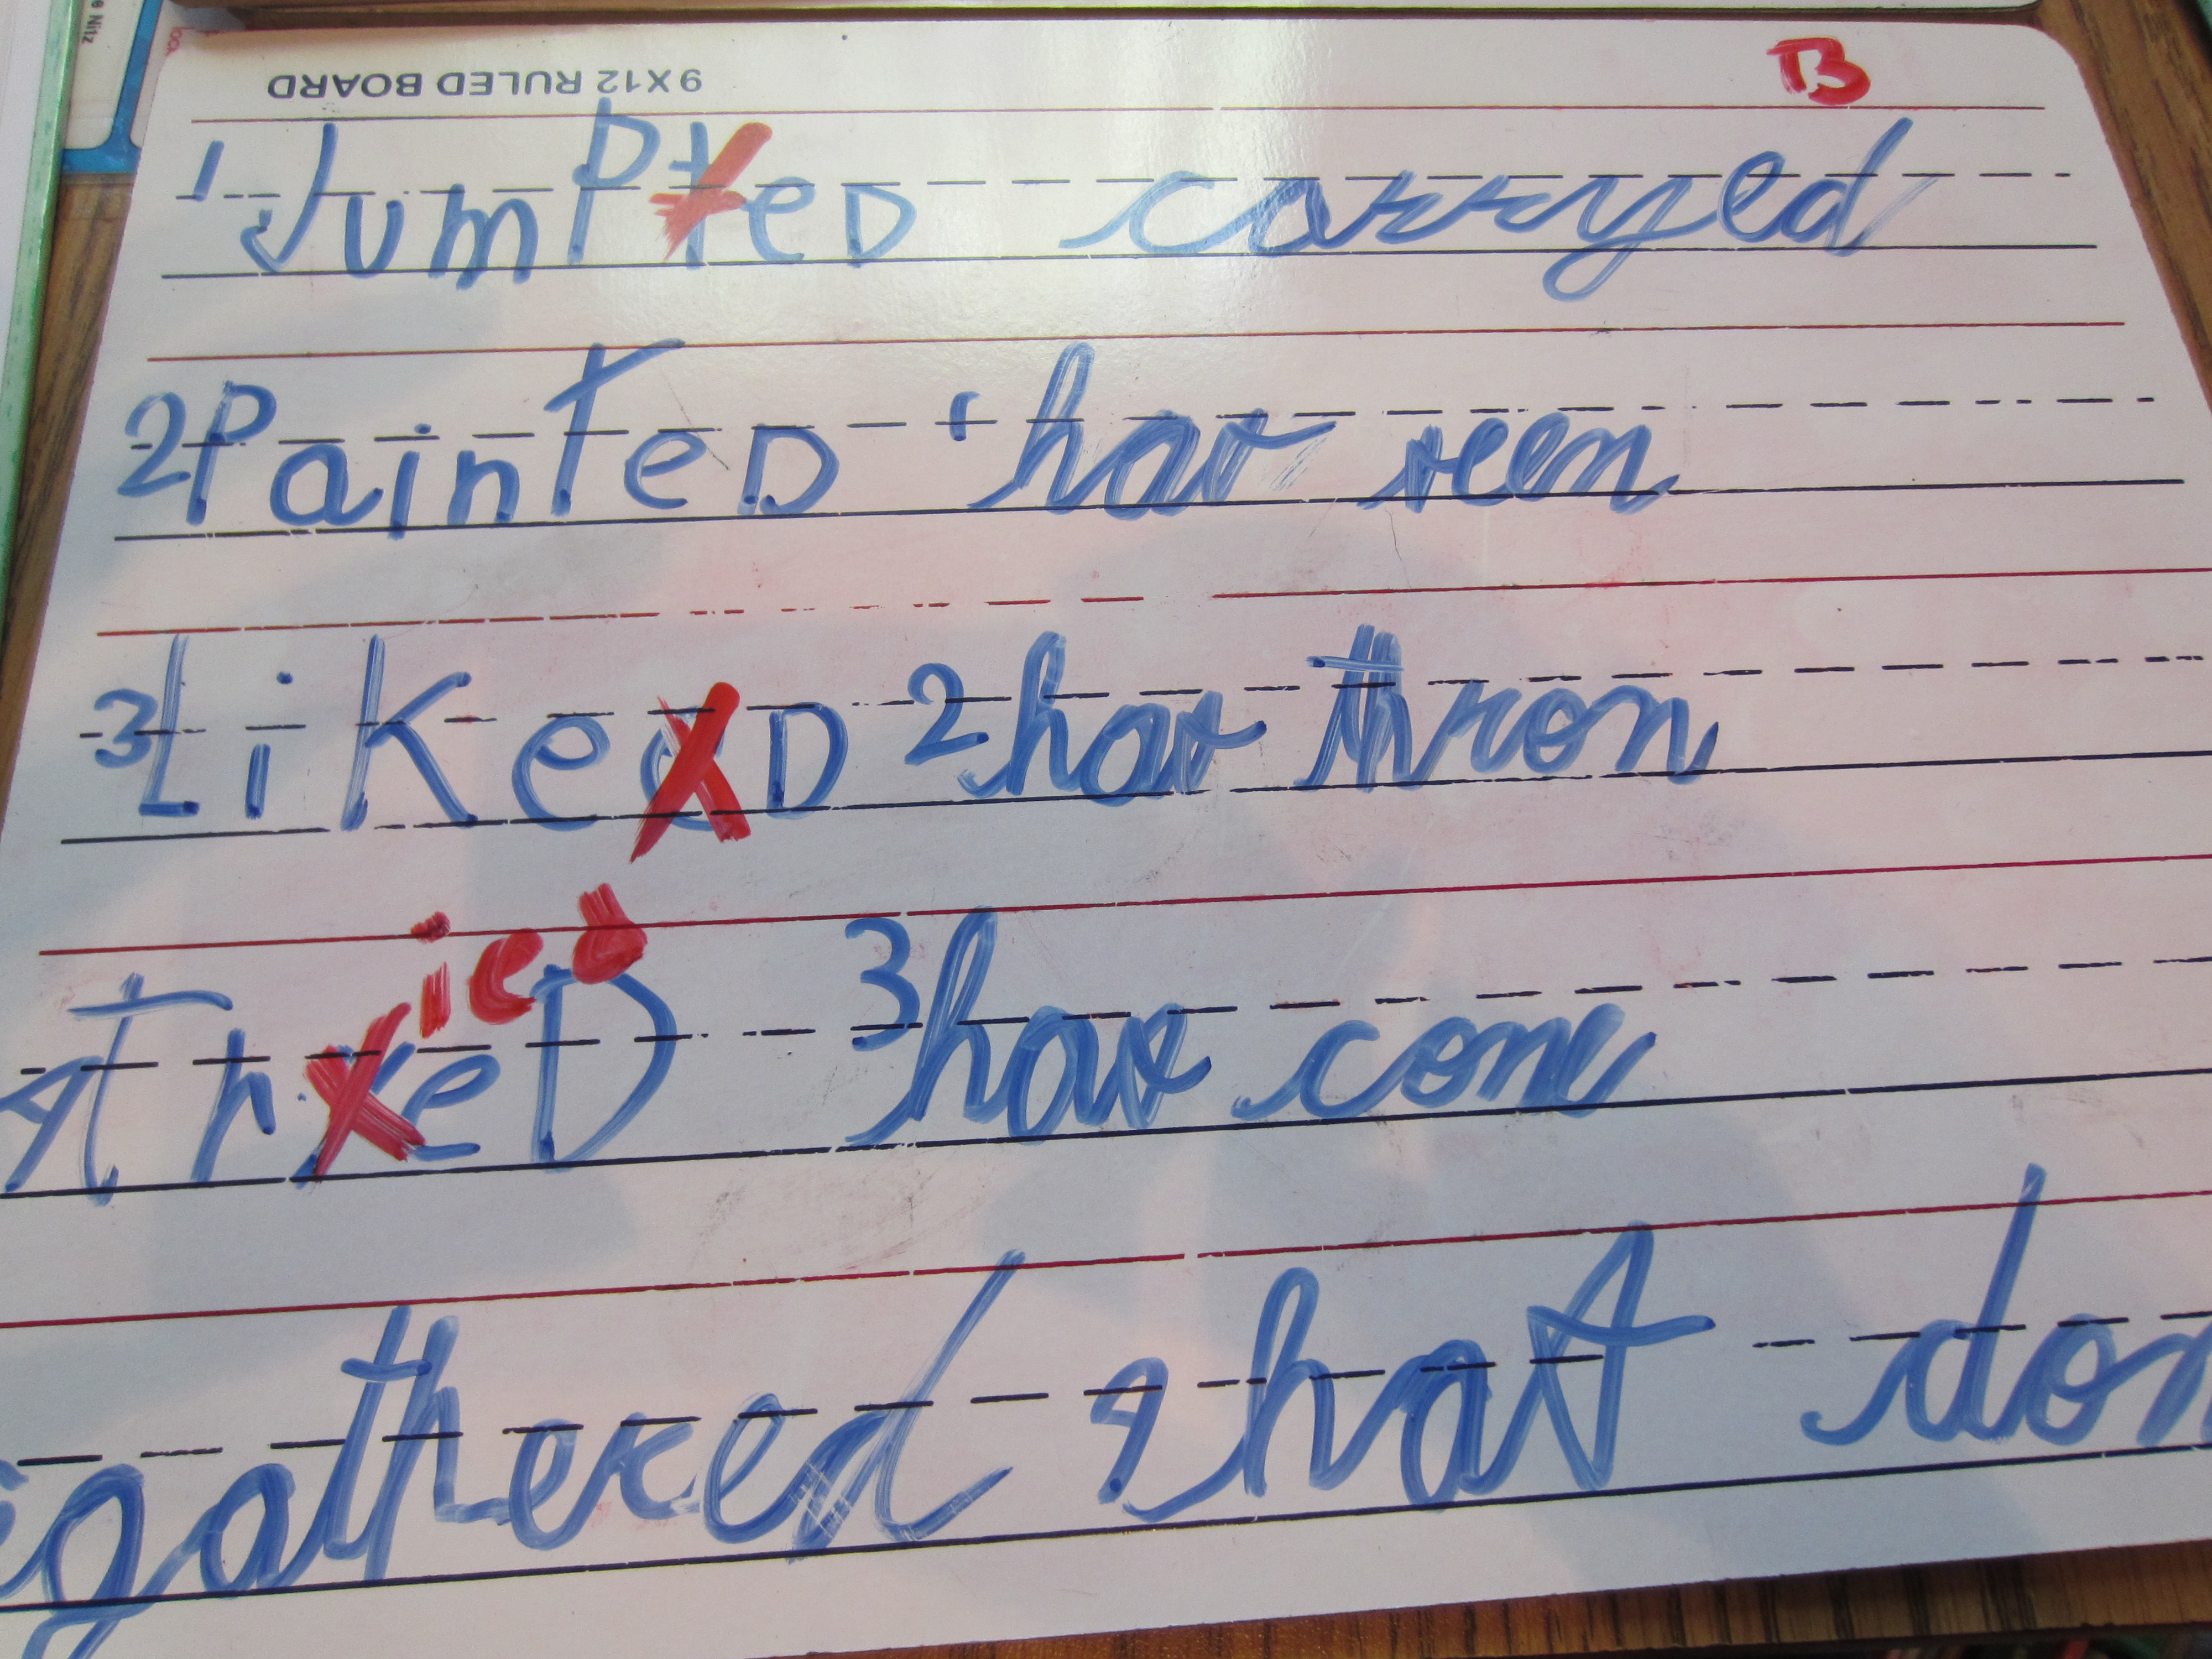 9X12 RULED BOARD
B
1 JumPteD carryed
2 PainTeD 1 hav seen
3 LikeeD 2 hav thron
ied
4 TryeD 3 hav come
gathered 4 hat don